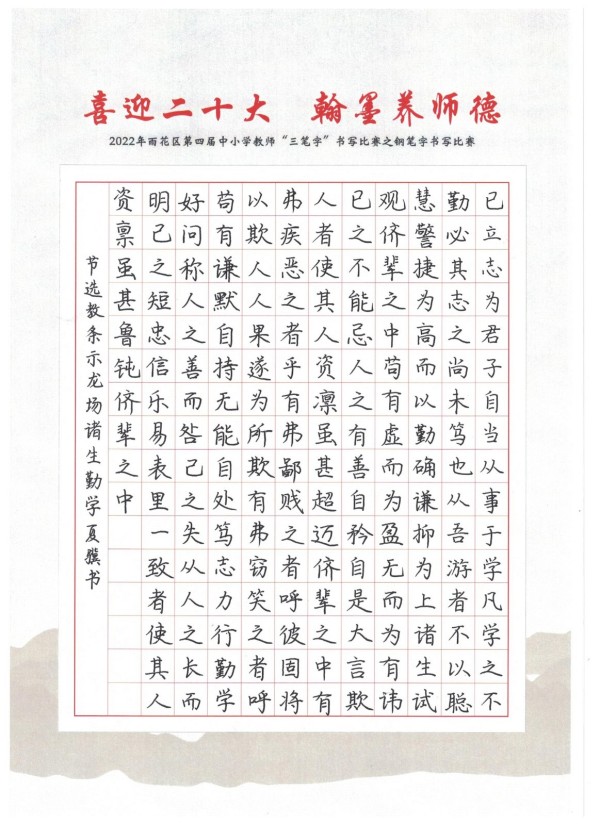 喜迎二十大 翰墨养师德
2022年雨花区第四届中小学教师“三笔字”书写比赛之钢笔字书写比赛
已立志为君子自当从事于学凡学之不
勤必其志之尚未笃也从吾游者不以聪
慧警捷为高而以勤确谦抑为上诸生试
观侪辈之中苟有虚而为盈无而为有讳
己之不能忌人之有善自矜自是大言欺
人者使其人资凛虽甚超迈侪辈之中有
弗疾恶之者乎有弗鄙贱之者呼彼固将
以欺人人果遂为所欺有弗窃笑之者呼
苟有谦默自持无能自处笃志力行勤学
好问称人之善而咎己之失从人之长而
明己之短忠信乐易表里一致者使其人
资禀虽甚鲁钝侪辈之中
节选教条示龙场诸生勤学夏骥书